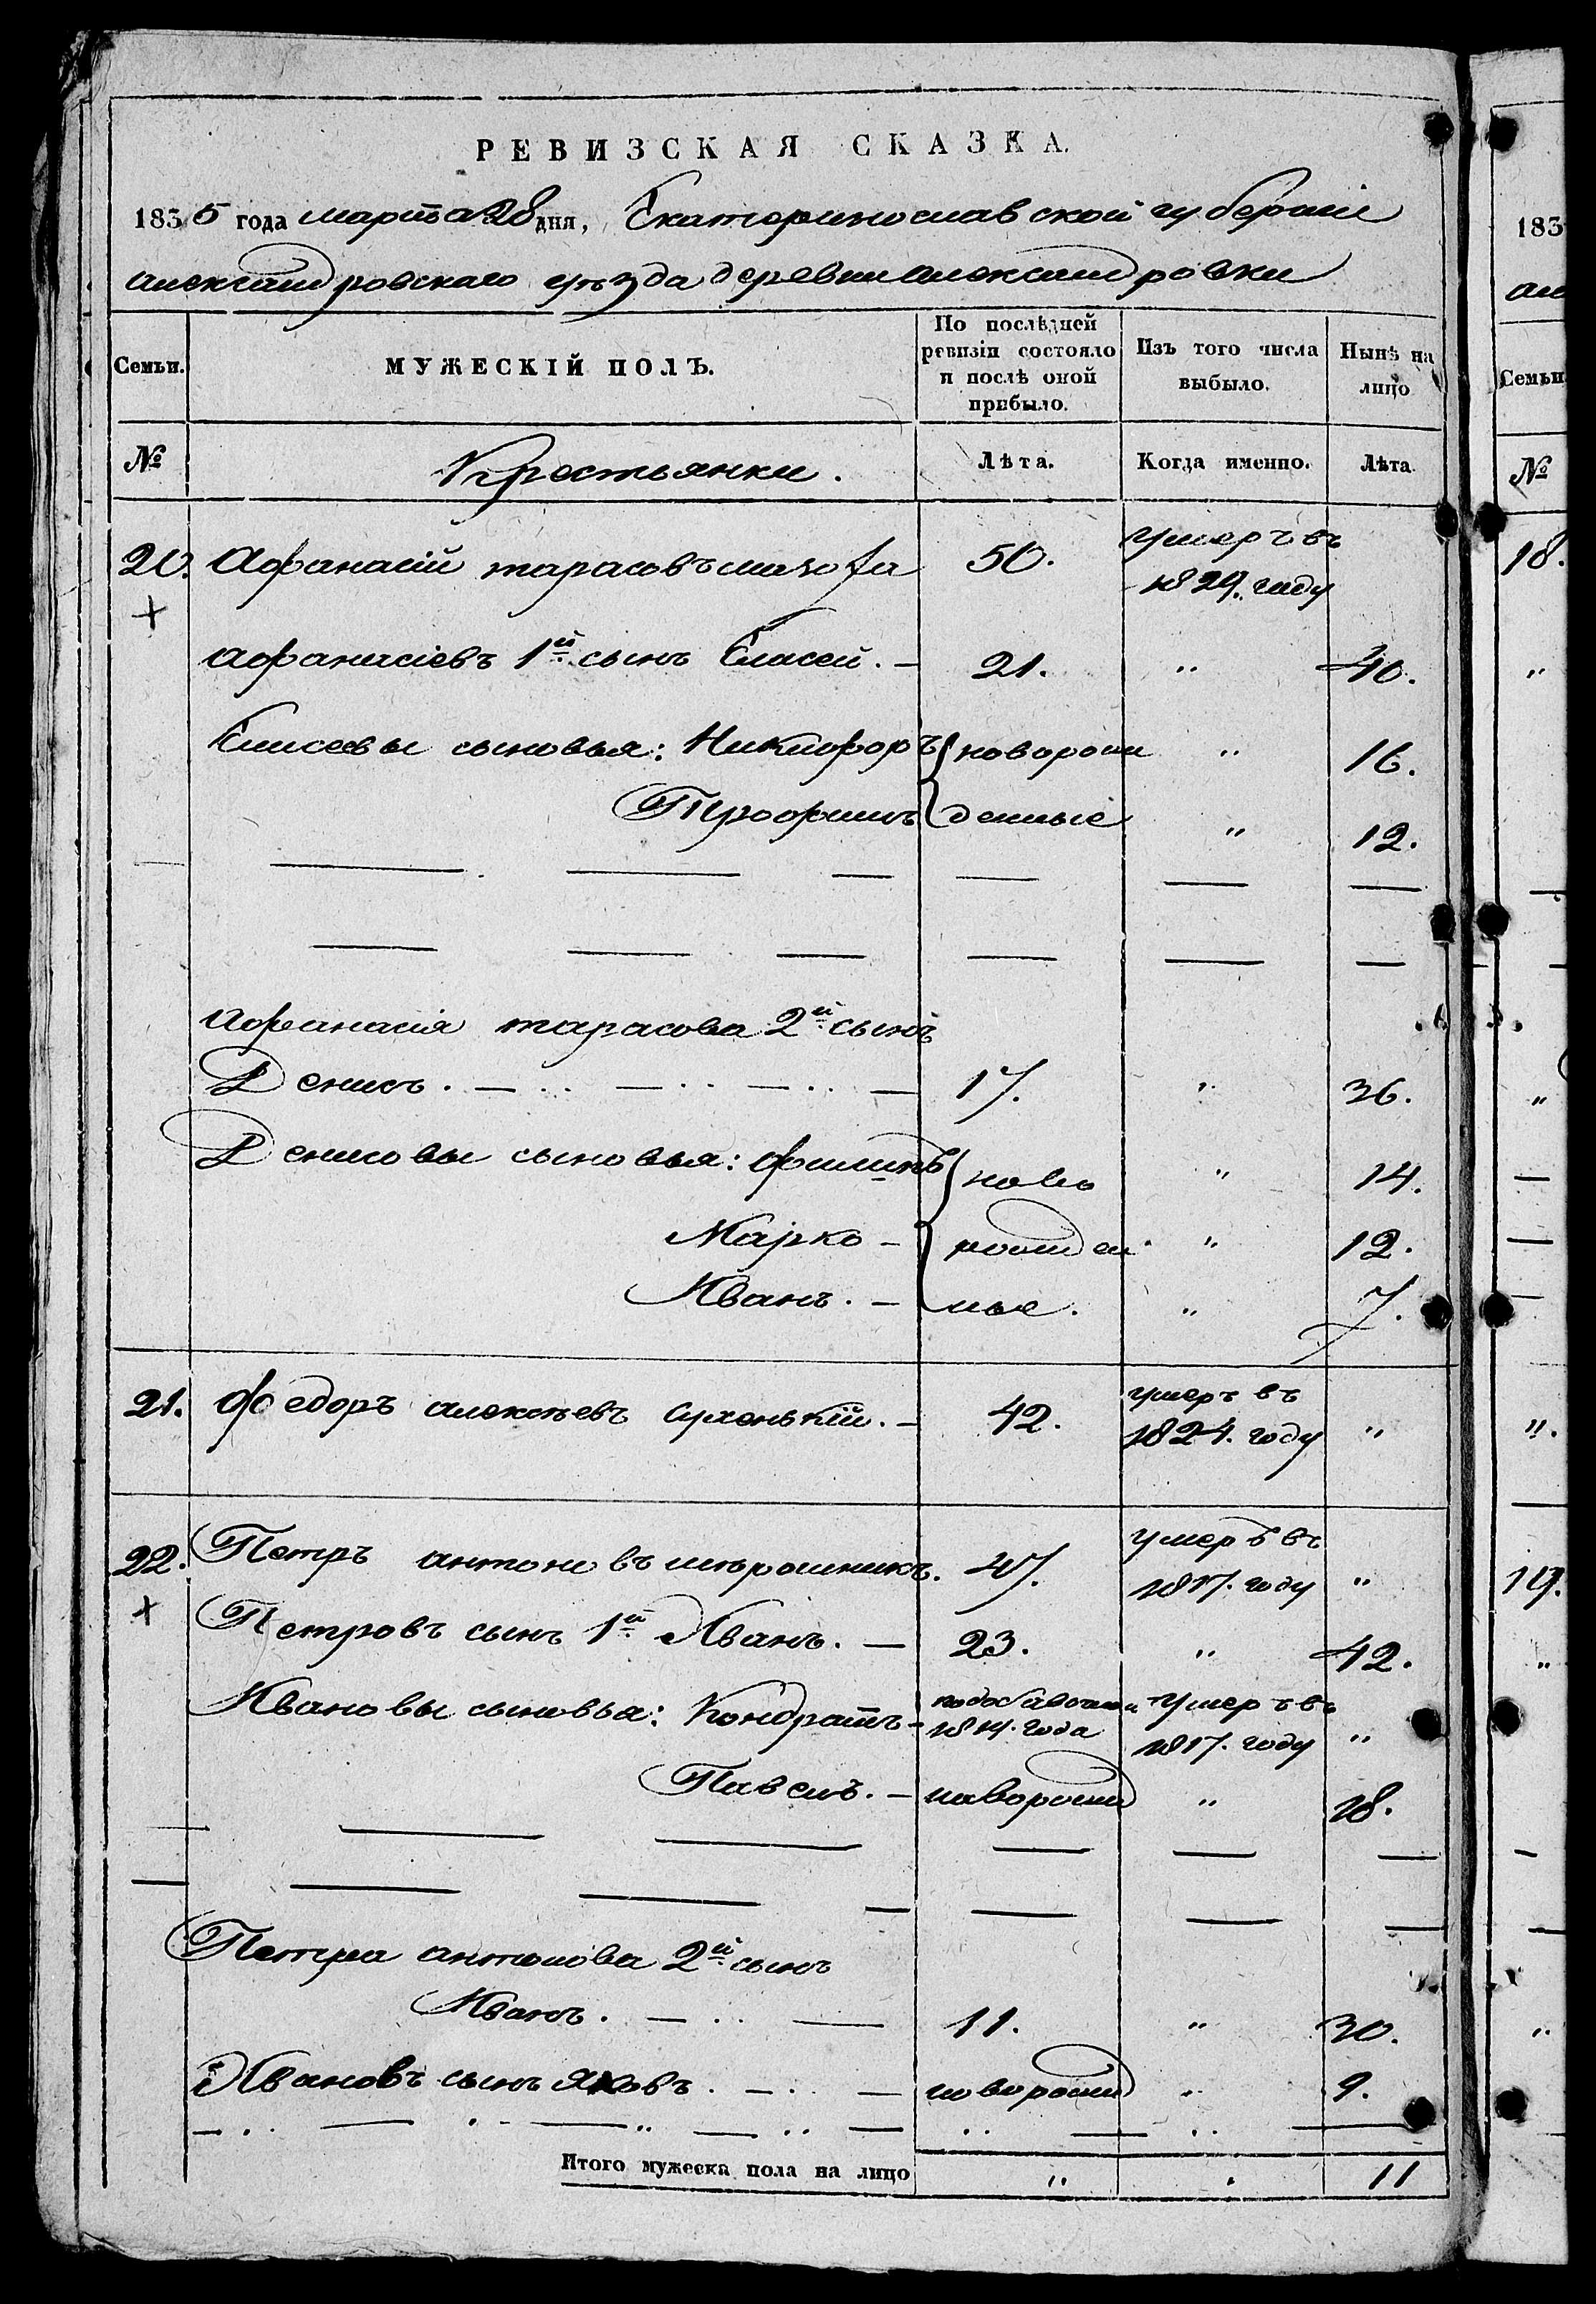 РЕВИЗСКАЯ СКАЗКА.
1835 года марта 28 дня, Екатеринославской губерніи
александровскаго уѣзда деревни александровки
Семьи.
МУЖЕСКІЙ ПОЛЪ.
По послѣдней ревизіи состояло и послѣ оной прибыло.
Изъ того числа выбыло.
Нынѣ на лицо
№ Крестьянки. Лѣта. Когда именно. Лѣта.
20. Афанасій тарасовъ 50. умеръ въ 1829. году
+
афанасіевъ 1й. сынъ Елисей. — 21. „ 40.
Елисеевы сыновья: Никифоръ новорож „ 16.
Трофимъ денные „ 12.
Афанасія тарасова 2й. сынъ
Денисъ. — 17. „ 36.
Денисовы сыновья: филипъ ново „ 14.
Марко — рожден „ 12.
Иванъ. — ные. „ 7.
21. Федоръ алексѣевъ Сухенькій. — 42. умеръ въ 1824. году „
22. Петръ антоновъ 47. умеръ въ 1817. году „
+
Петровъ сынъ 1й. Иванъ. — 23. „ 42.
Ивановы сыновья: Кондратъ — 1814. года умеръ въ 1817. году „
Павелъ. — новорожд „ 18.
Петра антонова 2й. сынъ
Иванъ. — 11. „ 30.
Ивановъ сынъ яковъ. — новорожд „ 9.
Итого мужеска пола на лицо „ „ 11
183
але
Семьи
№
18.
19.